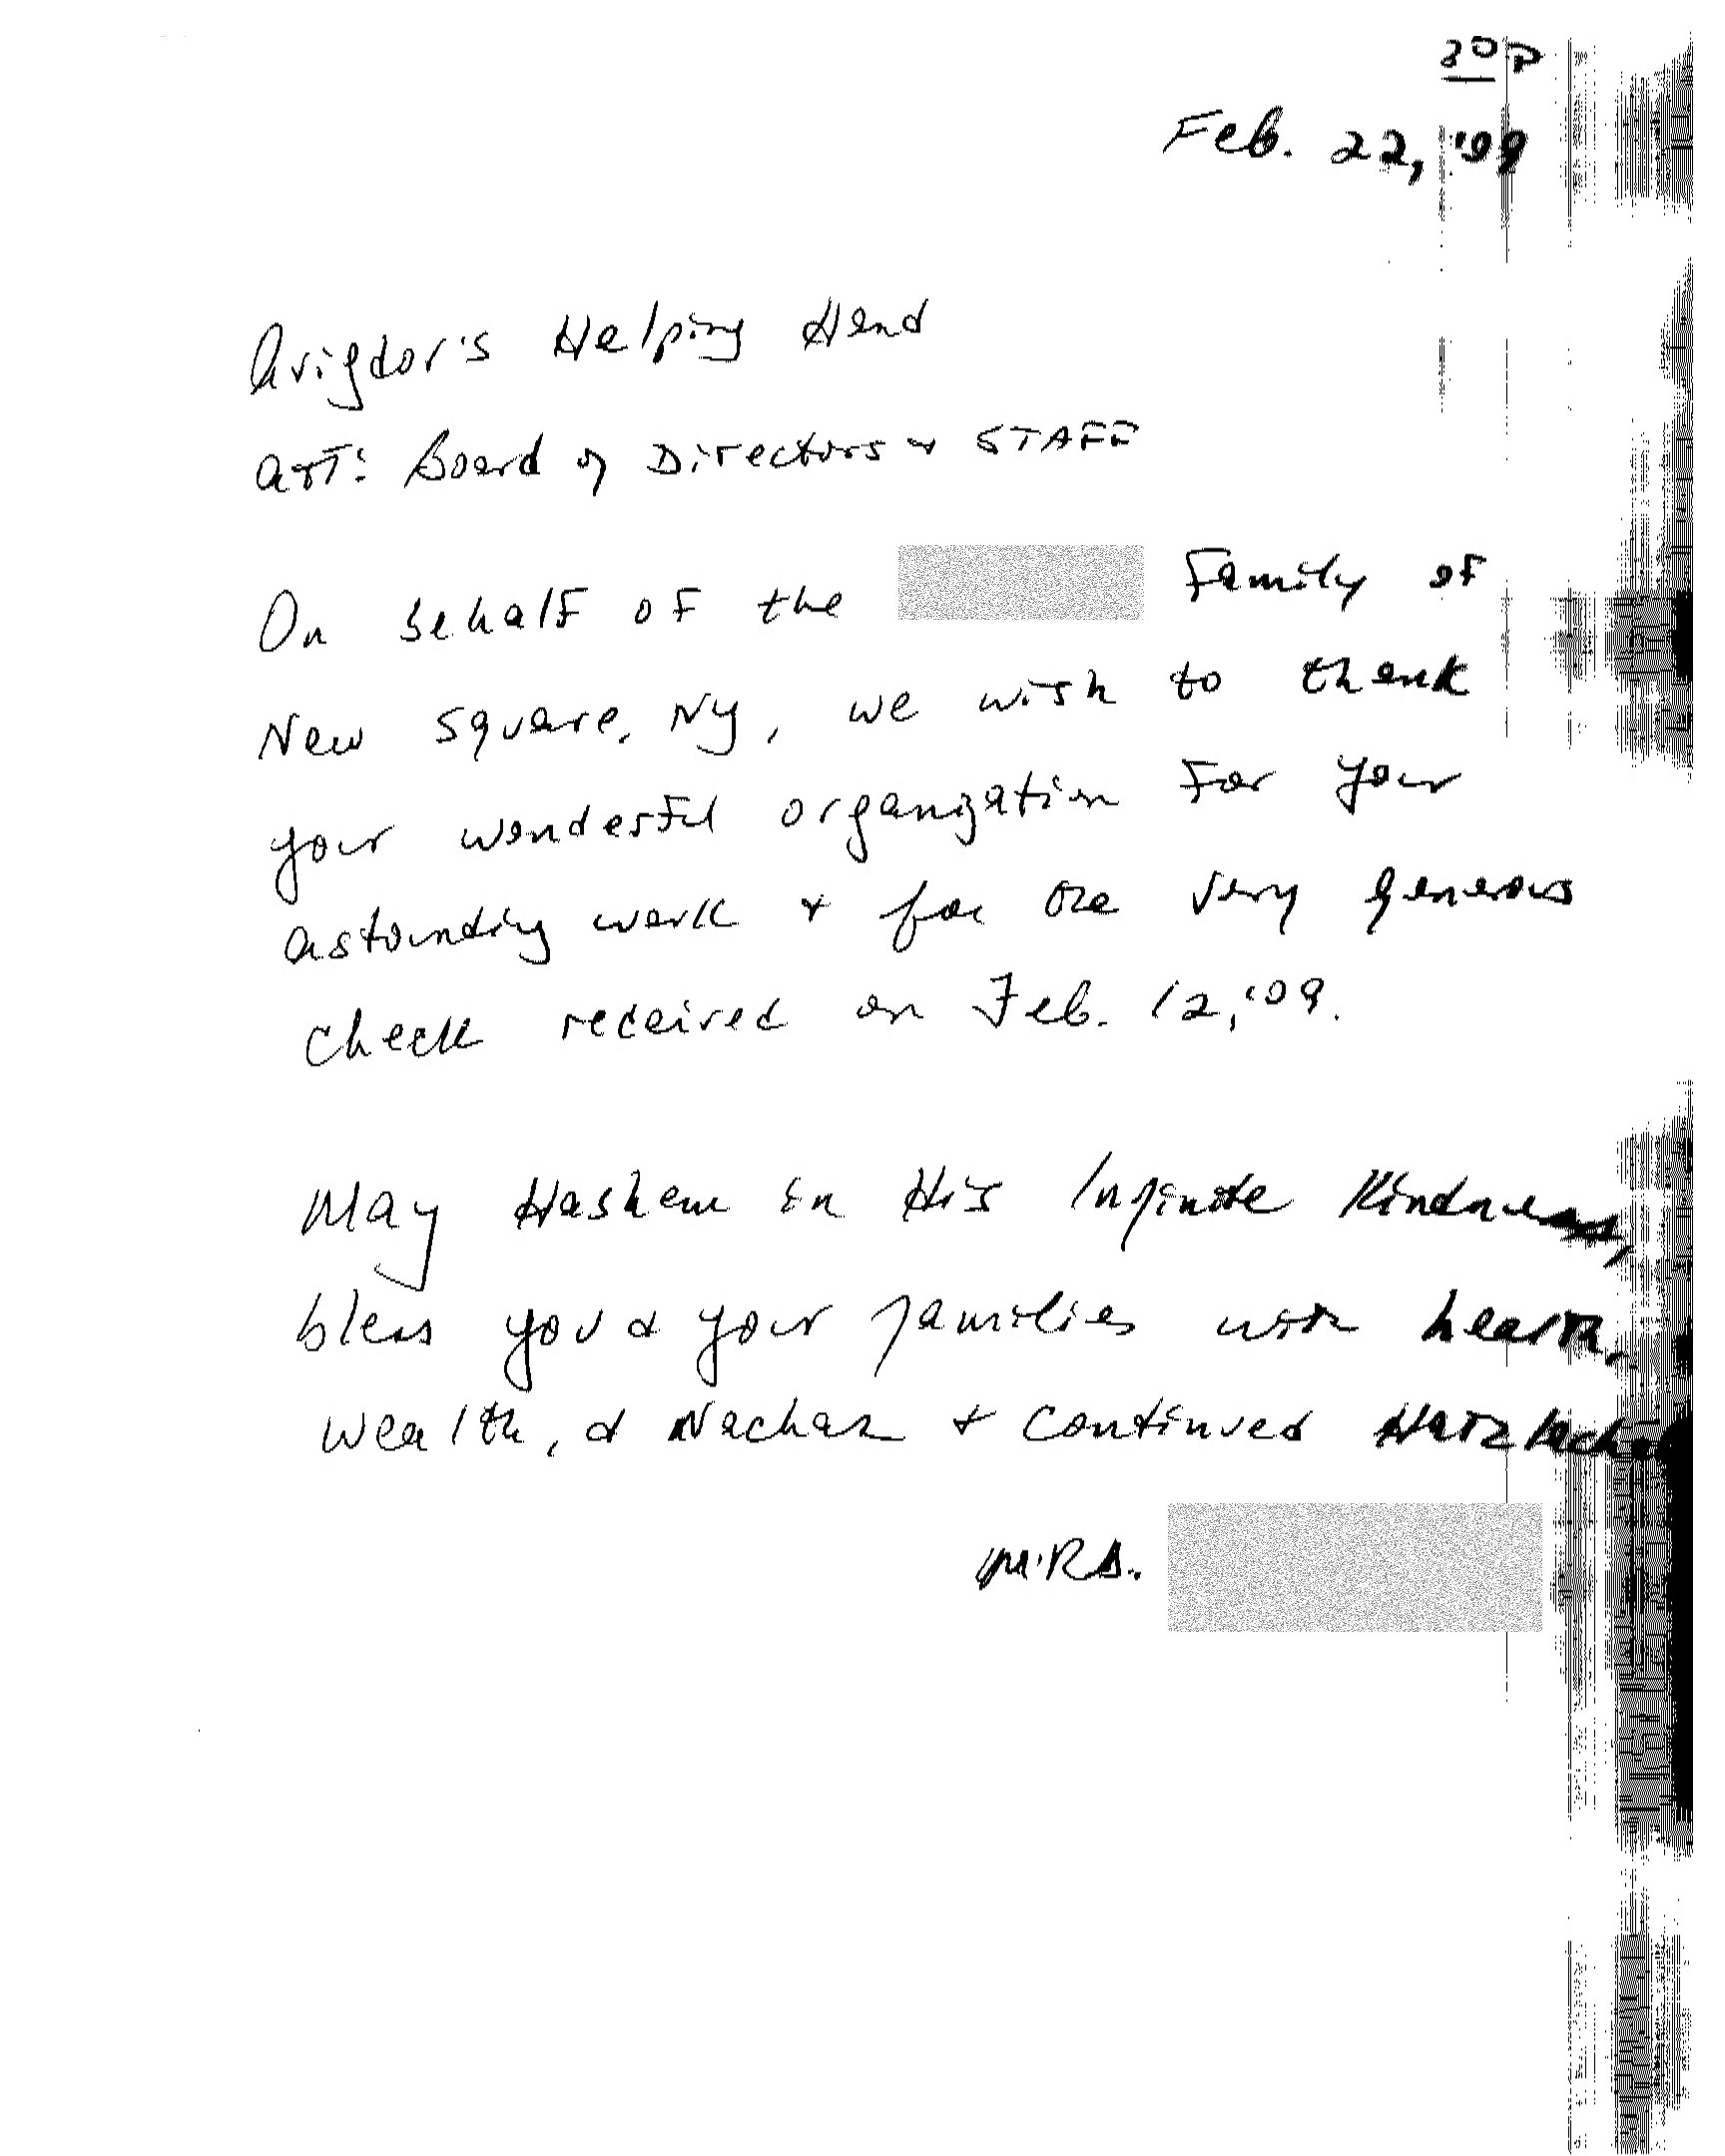 Feb. 22, '09
Avigdor's Helping Hand
ATT: Board of Directors & STAFF
On behalf of the Family of
New Square, NY, we wish to thank
your wonderful organization for your
astounding work & for the very generous
check received on Feb. 12, '09.
May Hashem in His Infinite Kindness,
bless you & your families with health,
wealth, & Nachas & continued Hatzlacha
MRS.